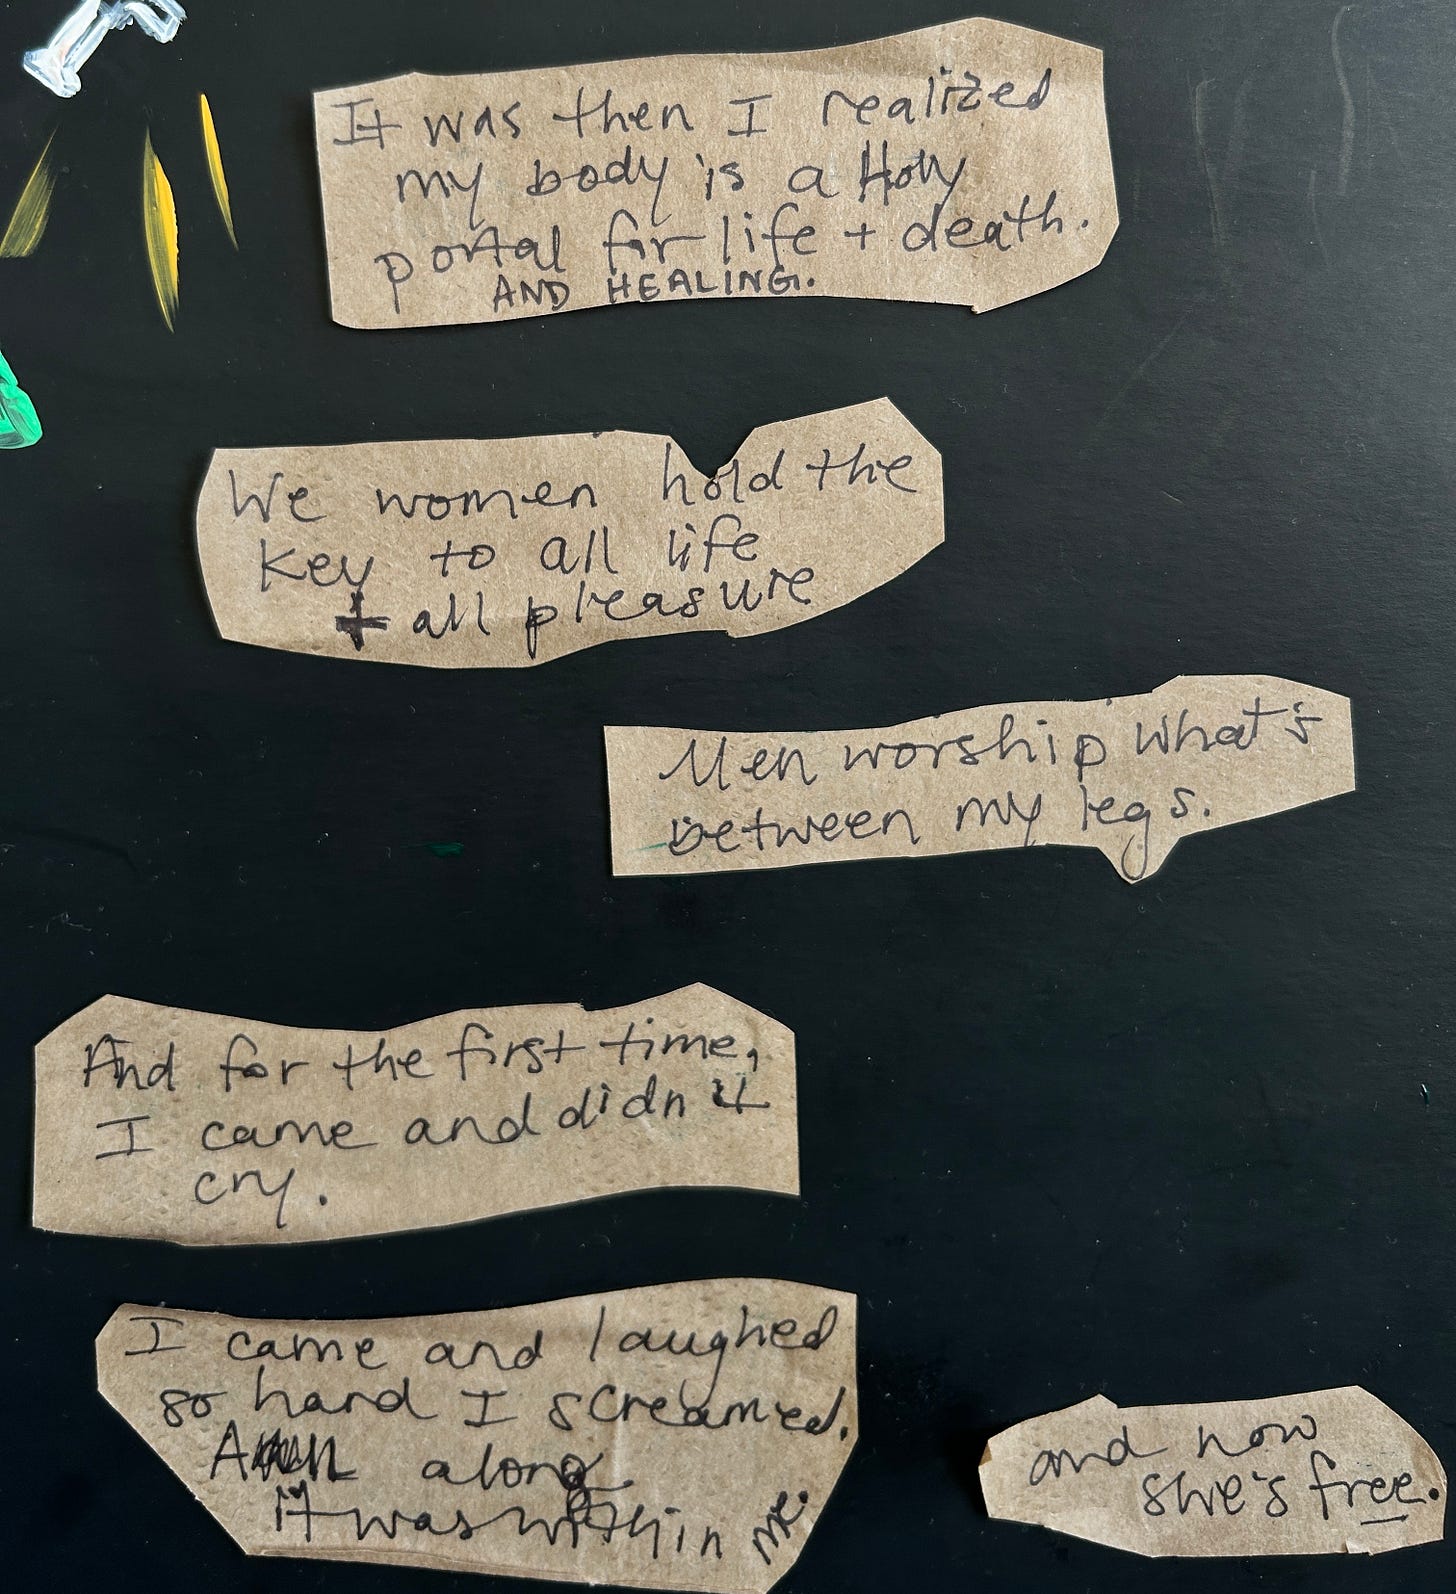 It was then I realized
my body is a Holy
portal for life + death.
AND HEALING.
We women hold the
key to all life
+ all pleasure
Men worship what's
between my legs.
And for the first time,
I came and didn't
cry.
I came and laughed
so hard I screamed.
All along
it was within me.
and now
she's free.